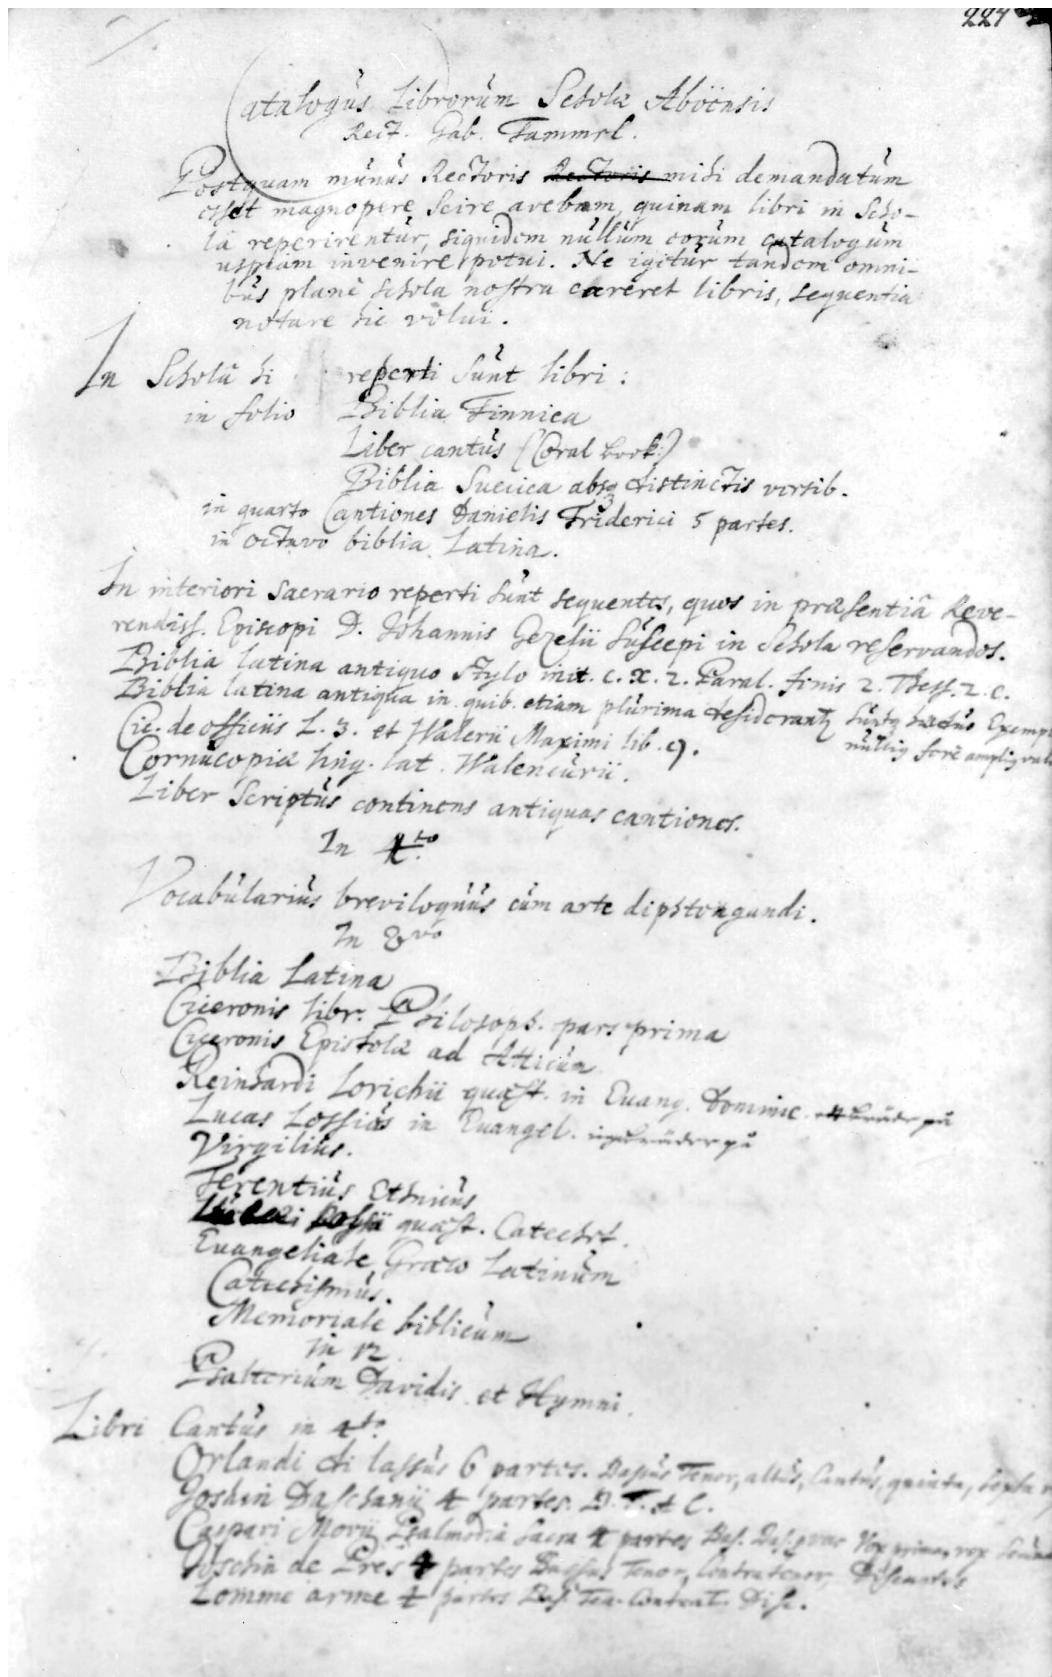 227
Catalogus Librorum Scholæ Aböensis
Rect. Gab. Tammel.
Postquam munus Rectoris Rectoris mihi demandatum
esset magnopere scire avebam, quinam libri in Scho-
lâ reperirentur, siquidem nullum eorum catalogum
uspiam invenire potui. Ne igitur tandem omni-
bus planè schola nostra careret libris, sequentia
notare hic volui.
In Scholâ hi reperti sunt libri:
in folio Biblia Finnica
Liber cantus (Coral book:)
Biblia Suecica absq distinctis versib.
in quarto Cantiones Danielis Friderici 5 partes.
in octavo biblia Latina.
In interiori sacrario reperti sunt sequentes, quos in præsentiâ Reve-
rendiss. Episcopi D. Johannis Gezelii suscepi in Schola reservandos.
Biblia latina antiquo stylo init. c. X. 2. Paral. finis 2. Thess. 2. c.
Biblia latina antiqua in quib. etiam plurima desiderantz
Cic. de officiis L. 3. et Walerii Maximi lib. 9.
Cornucopiæ ling. lat. Walencurii.
Liber scriptus continens antiquas cantiones.
In 4.to
Vocabularius breviloquus cum arte diphtongandi.
In 8vo
Biblia Latina
Ciceronis libr. Philosoph. pars prima
Ciceronis Epistolæ ad Atticum
Reinhardi Lorichii quæst. in Euang. Dominic.
Lucas Lossius in Euangel.
Virgilius.
Terentius Ethnicus
quæst. Catechet.
Euangeliale Græco Latinum
Catechismus.
Memoriale biblicum
In 12
Psalterium Davidis et Hymni.
Libri Cantus in 4to
Orlandi di lassus 6 partes. Bassus Tenor, altus, Cantus, quinta, Sexta
Joshin Baschanii 4 partes. B. T. A C.
Caspari Movii Psalmodia Sacra 4 partes Bas. Vox prima, vox
Joschin de Pres 4 partes Bassus Tenor, Contratenor, Discantus
Lomme arme 4 partes Bas. Ten. Contrat. Disc.